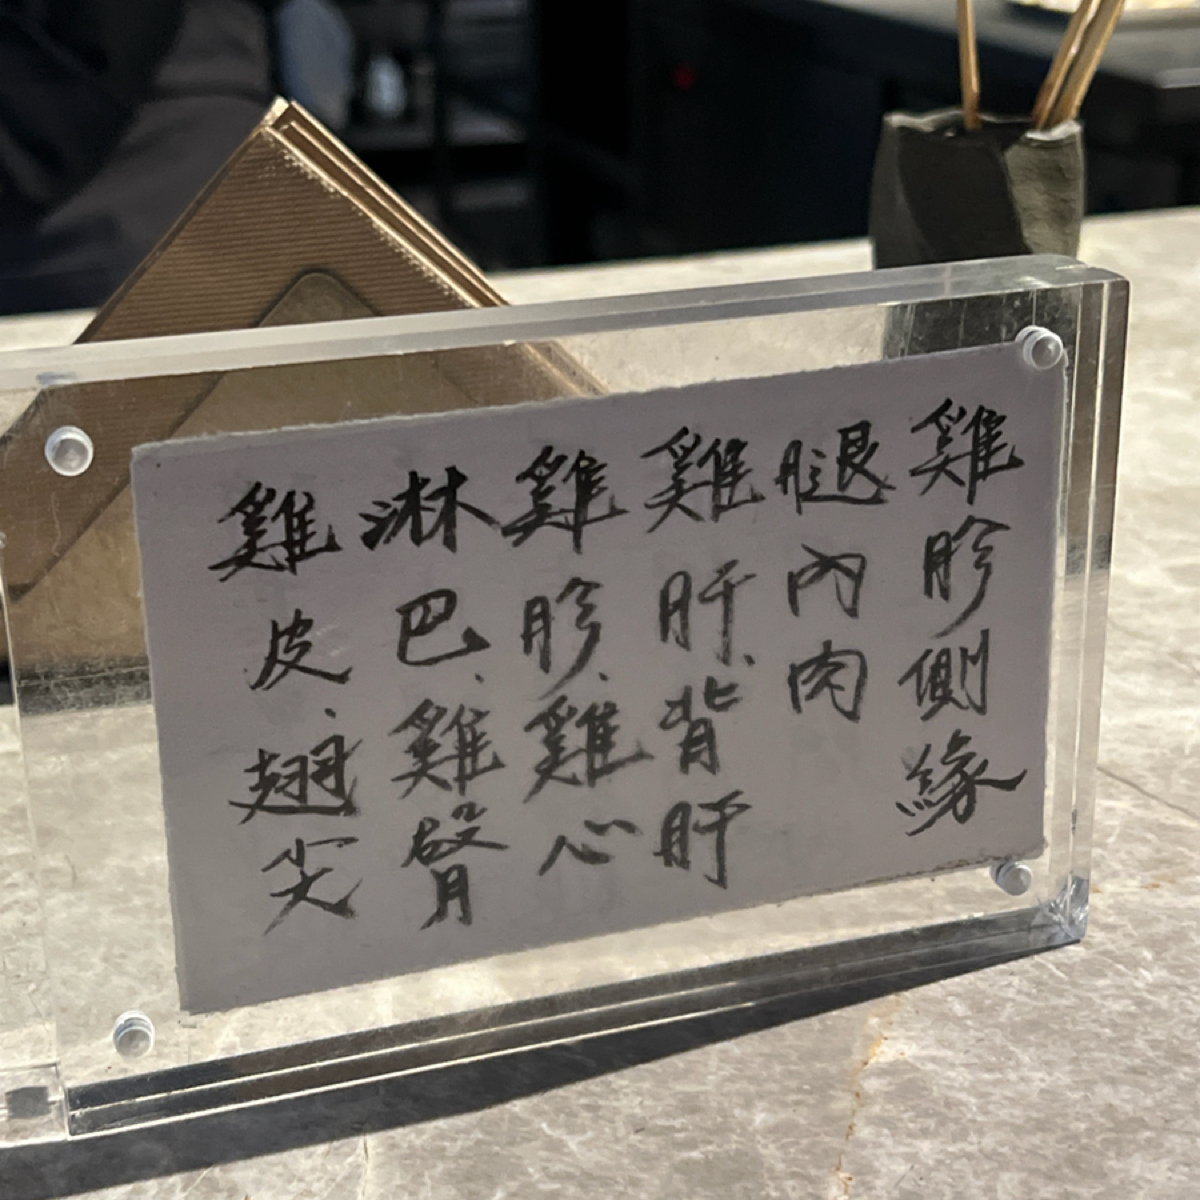 雞胗側緣
腿內肉
雞肝、背肝
雞胗、雞心
淋巴、雞臀
雞皮、翅尖